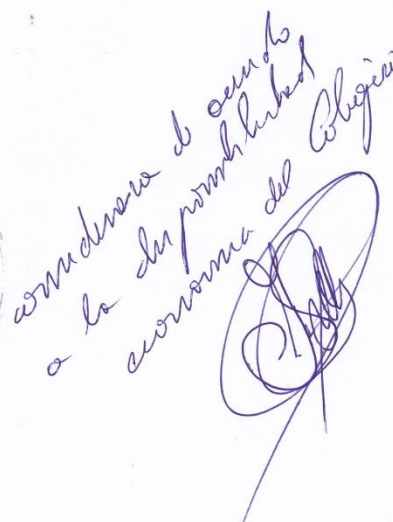 considerara de acuerdo
a la disponibilidad
economica del Colegio